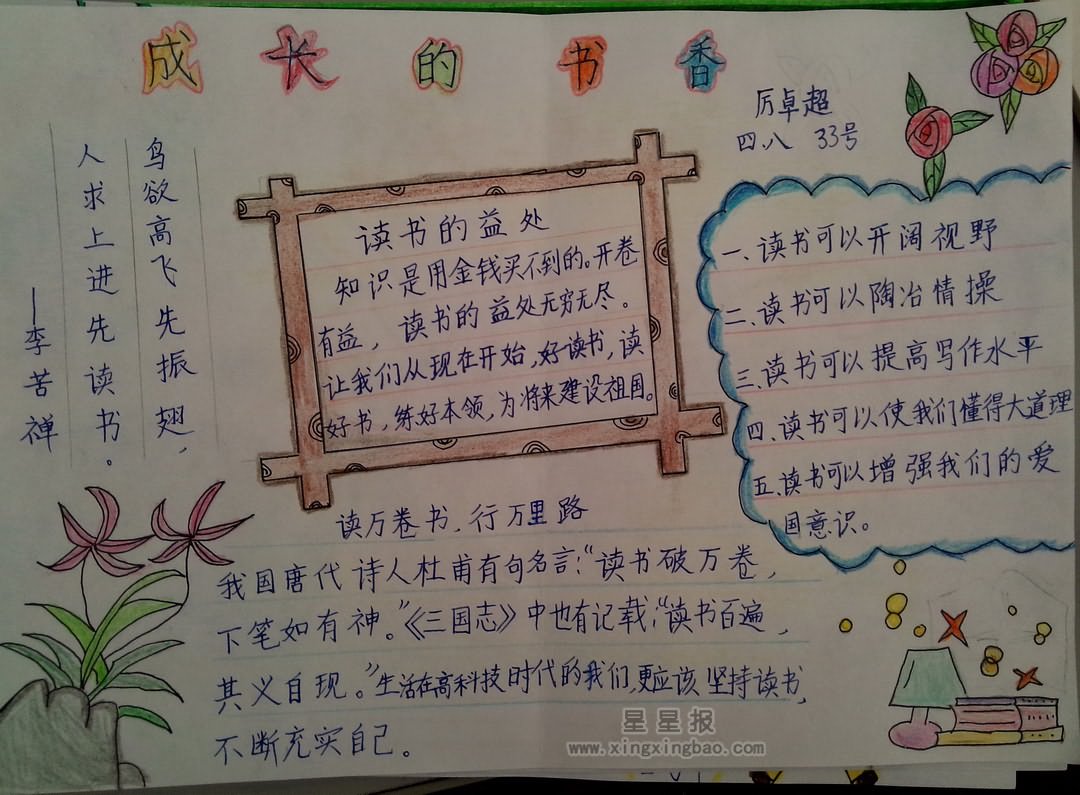 成长的书香
厉卓超
四.八 33号
鸟欲高飞先振翅，
人求上进先读书。
——李苦禅
读书的益处
知识是用金钱买不到的。开卷
有益，读书的益处无穷无尽。
让我们从现在开始，好读书，读
好书，练好本领，为将来建设祖国。
一、读书可以开阔视野
二、读书可以陶冶情操
三、读书可以提高写作水平
四、读书可以使我们懂得大道理
五、读书可以增强我们的爱
国意识。
读万卷书，行万里路
我国唐代诗人杜甫有句名言：“读书破万卷，
下笔如有神。”《三国志》中也有记载：“读书百遍，
其义自现。”生活在高科技时代的我们，更应该坚持读书，
不断充实自己。
星星报
www.xingxingbao.com